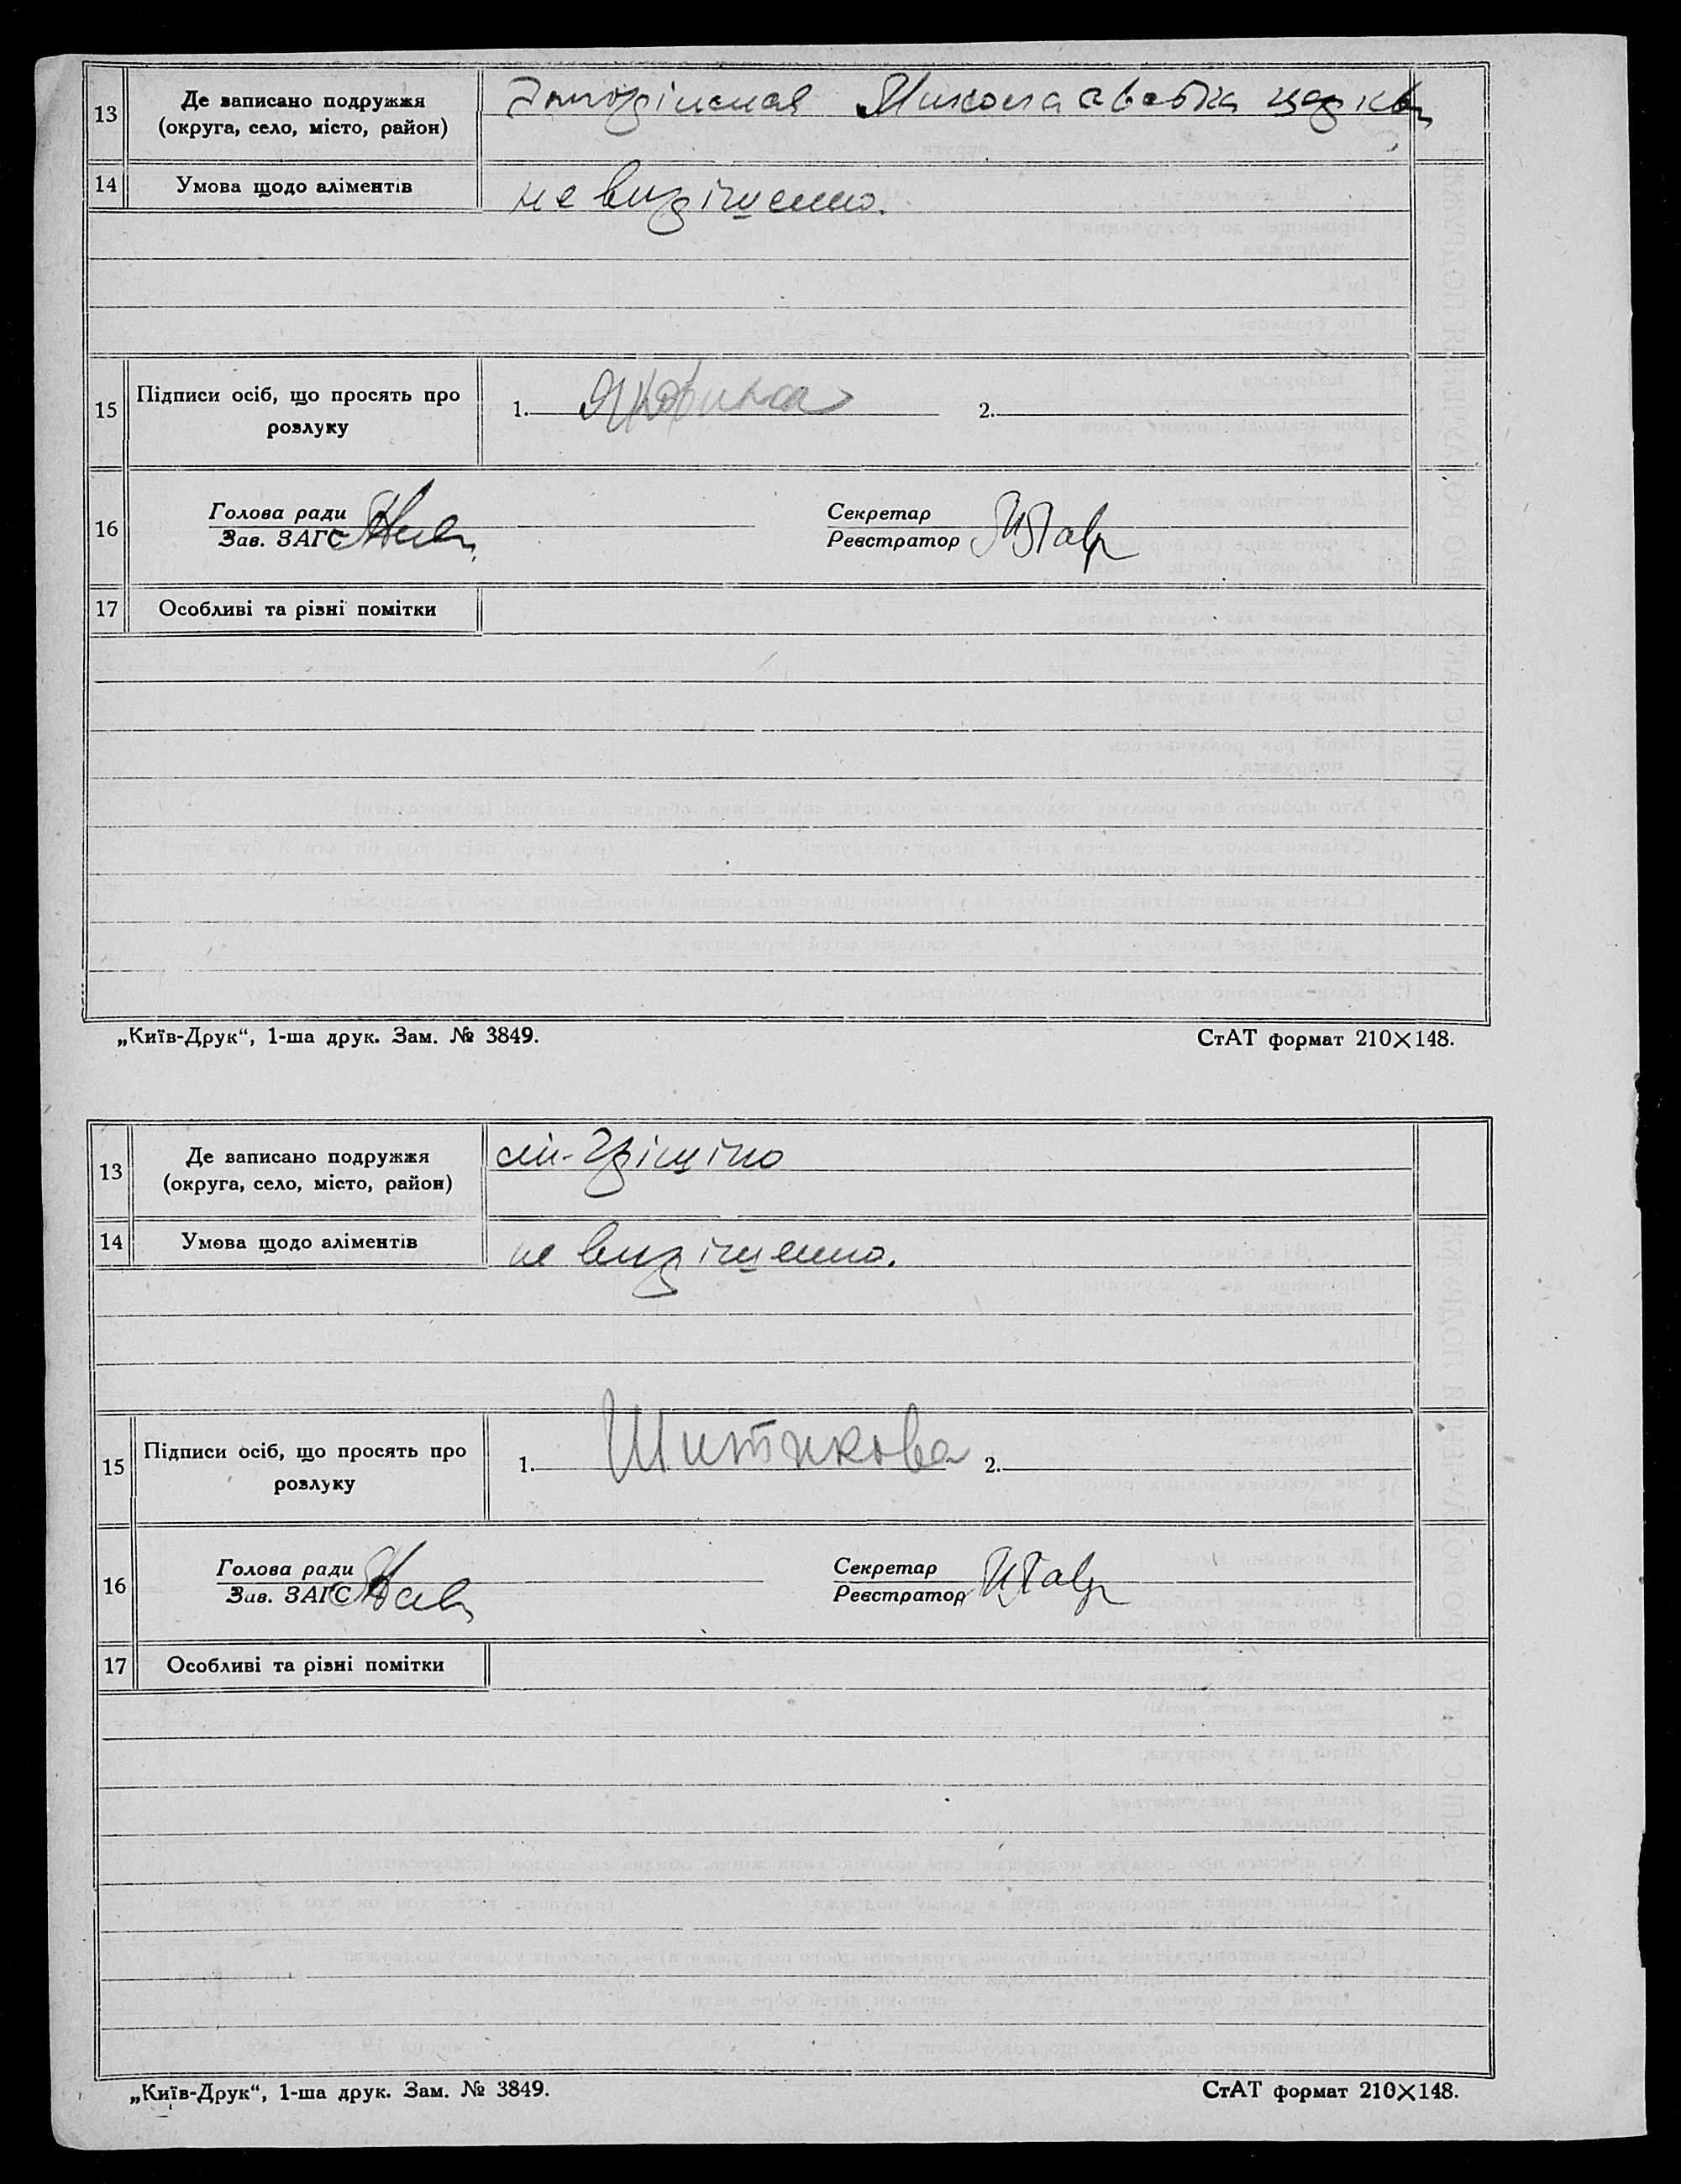 13 Де записано подружжя
(округа, село, місто, район)
церкви
14 Умова щодо аліментів не вирішенно.
15 Підписи осіб, що просять про
розлуку
1. 2.
16 Голова ради
Зав. ЗАГС
Секретар
Реєстратор
17 Особливі та різні помітки
„Київ-Друк“, 1-ша друк. Зам. № 3849. СтАТ формат 210×148.
13 Де записано подружжя
(округа, село, місто, район)
14 Умова щодо аліментів не вирішенно.
15 Підписи осіб, що просять про
розлуку
1. Шитикова 2.
16 Голова ради
Зав. ЗАГС
Секретар
Реєстратор
17 Особливі та різні помітки
„Київ-Друк“, 1-ша друк. Зам. № 3849. СтАТ формат 210×148.